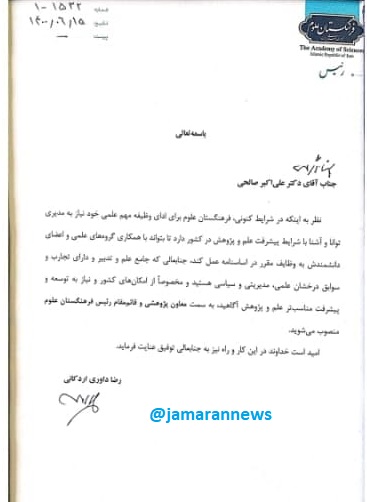 شماره ۱-۱۵۳۲
تاریخ ۱۴۰۰/۰۶/۱۵
پیوست
فرهنگستان علوم
The Academy of Sciences
Islamic Republic of Iran
رئیس
باسمه‌تعالی
جناب آقای دکتر علی‌اکبر صالحی
نظر به اینکه در شرایط کنونی، فرهنگستان علوم برای ادای وظیفه مهم علمی خود نیاز به مدیری
توانا و آشنا با شرایط پیشرفت علم و پژوهش در کشور دارد تا بتواند با همکاری گروه‌های علمی و اعضای
دانشمندش به وظایف مقرر در اساسنامه عمل کند، جنابعالی که جامع علم و تدبیر و دارای تجارب و
سوابق درخشان علمی، مدیریتی و سیاسی هستید و مخصوصاً از امکان‌های کشور و نیاز به توسعه و
پیشرفت مناسب‌تر علم و پژوهش آگاهید، به سمت معاون پژوهشی و قائم‌مقام رئیس فرهنگستان علوم
منصوب می‌شوید.
امید است خداوند در این کار و راه نیز به جنابعالی توفیق عنایت فرماید.
رضا داوری اردکانی
@jamarannews